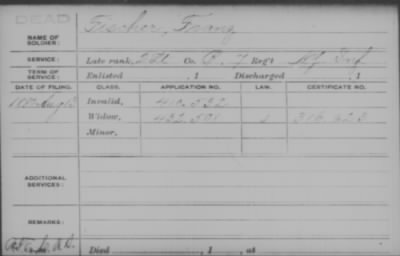 DEAD
NAME OF SOLDIER: Fischer, Franz
SERVICE: Late rank, 2 Lt Co. B, 7 Reg't Ky Inf
TERM OF SERVICE: Enlisted , 1 Discharged , 1
DATE OF FILING. CLASS. APPLICATION NO. LAW. CERTIFICATE NO.
Invalid, 410.532
Widow, 432.501 316.623
Minor,
ADDITIONAL SERVICES:
REMARKS:
Died , 1 , at